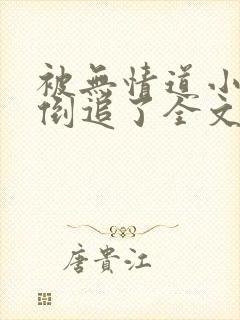 被無情道小
倒追了全文
唐貴江